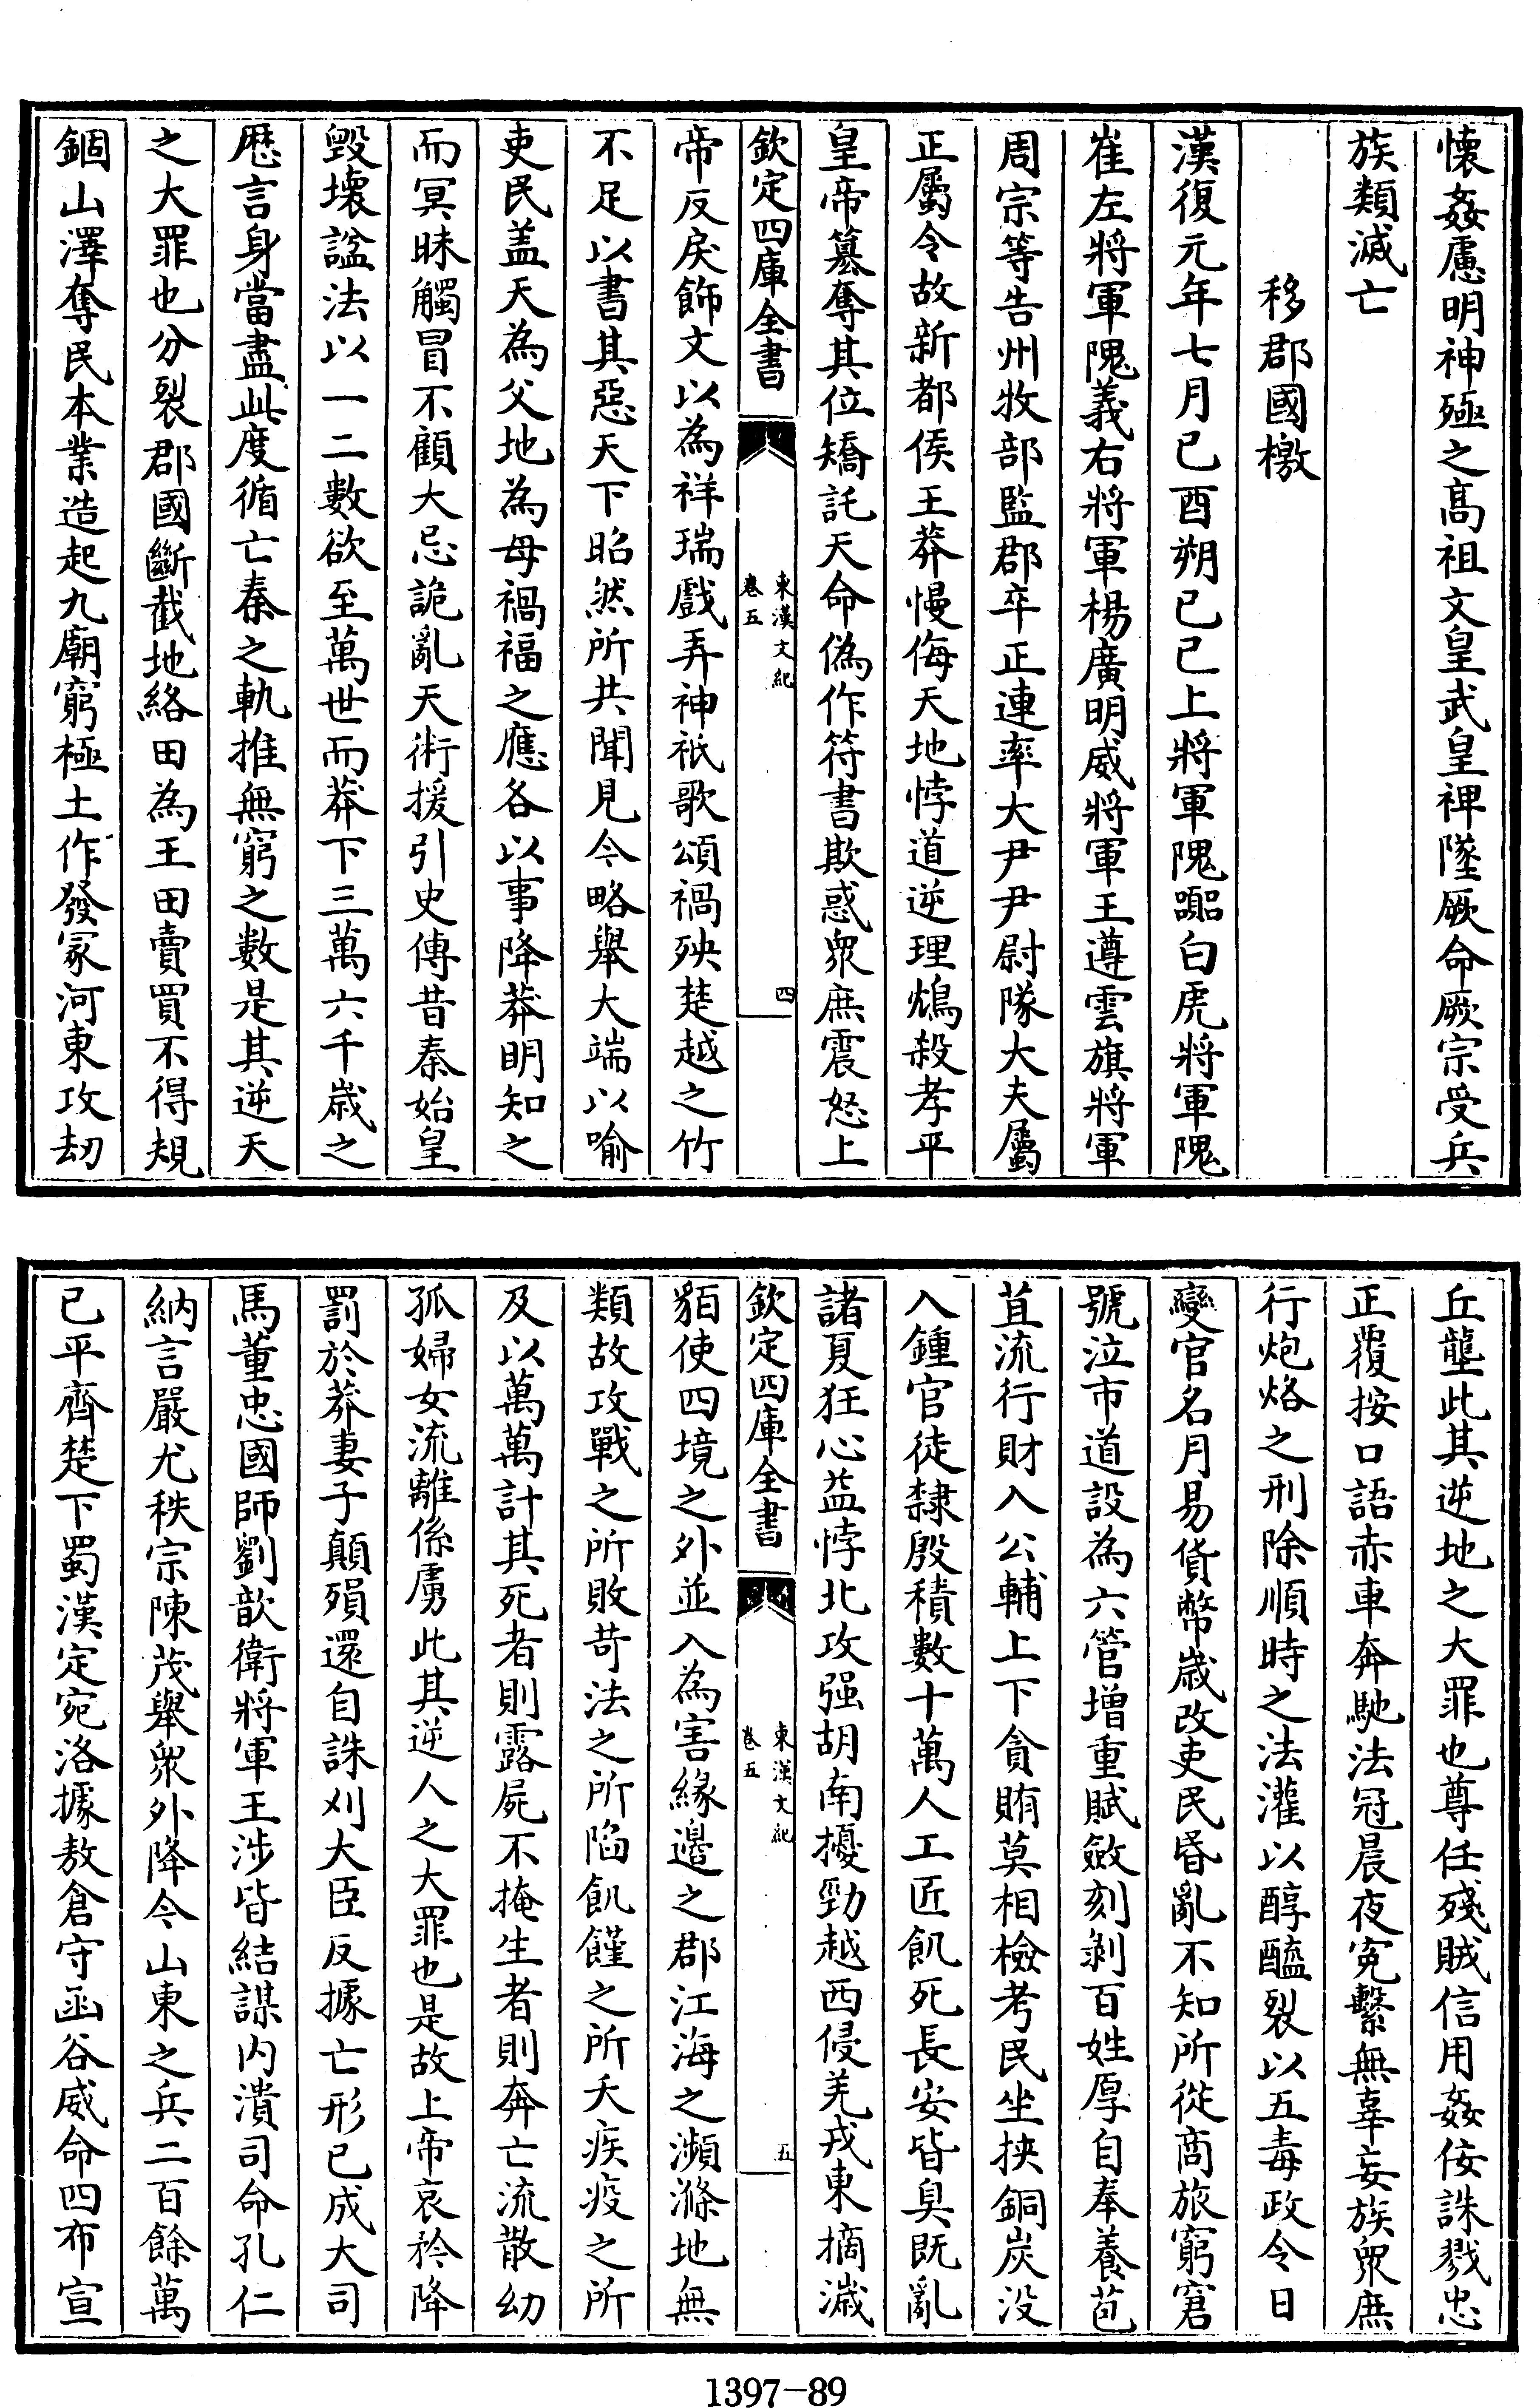 懐姦慮明神殛之髙祖文皇武皇裨墜厥命厥宗受兵
族類滅亡
移郡國檄
漢復元年七月已酉朔已已上將軍隗囂白虎將軍隗
崔左將軍隗義右將軍楊廣明威將軍王遵雲旗將軍
周宗等告州牧部監郡卒正連率大尹尹尉隊大夫屬
正屬令故新都侯王莽慢侮天地悖道逆理鴆殺孝平
皇帝簒奪其位矯託天命偽作符書欺惑衆庶震怒上
欽定四庫全書
東漢文紀
卷五
四
帝反戾飾文以為祥瑞戲弄神祇歌頌禍殃楚越之竹
不足以書其惡天下昭然所共聞見今略舉大端以喻
吏民盖天為父地為母禍福之應各以事降莽明知之
而冥昧觸冒不顧大忌詭亂天術援引史傳昔秦始皇
毁壞諡法以一二數欲至萬世而莽下三萬六千歲之
厯言身當盡此度循亡秦之軌推無窮之數是其逆天
之大罪也分裂郡國斷截地絡田為王田賣買不得規
錮山澤奪民本業造起九廟窮極土作發冢河東攻刼
丘壟此其逆地之大罪也尊任殘賊信用姦佞誅戮忠
正覆按口語赤車奔馳法冠晨夜寃繫無辜妄族衆庶
行炮烙之刑除順時之法灌以醇醯裂以五毒政令日
變官名月易貨幣歲改吏民昏亂不知所從商旅窮窘
號泣市道設為六管增重賦斂刻剥百姓厚自奉養苞
苴流行財入公輔上下貪賄莫相檢考民坐挾銅炭没
入鍾官徒隸殷積數十萬人工匠飢死長安皆臭既亂
諸夏狂心益悖北攻强胡南擾勁越西侵羌戎東摘濊
欽定四庫全書
東漢文紀
卷五
五
貊使四境之外並入為害緣邊之郡江海之瀕滌地無
類故攻戰之所敗苛法之所陷飢饉之所夭疾疫之所
及以萬萬計其死者則露屍不掩生者則奔亡流散幼
孤婦女流離係虜此其逆人之大罪也是故上帝哀矜降
罰於莽妻子顛殞還自誅刈大臣反據亡形已成大司
馬董忠國師劉歆衛將軍王涉皆結謀内潰司命孔仁
納言嚴尤秩宗陳茂舉衆外降今山東之兵二百餘萬
已平齊楚下蜀漢定宛洛據敖倉守函谷威命四布宣
1397-89